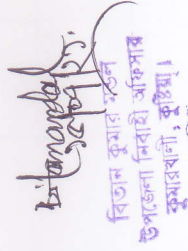 বিতান কুমার মন্ডল
উপজেলা নির্বাহী অফিসার
কুমারখালী, কুষ্টিয়া।